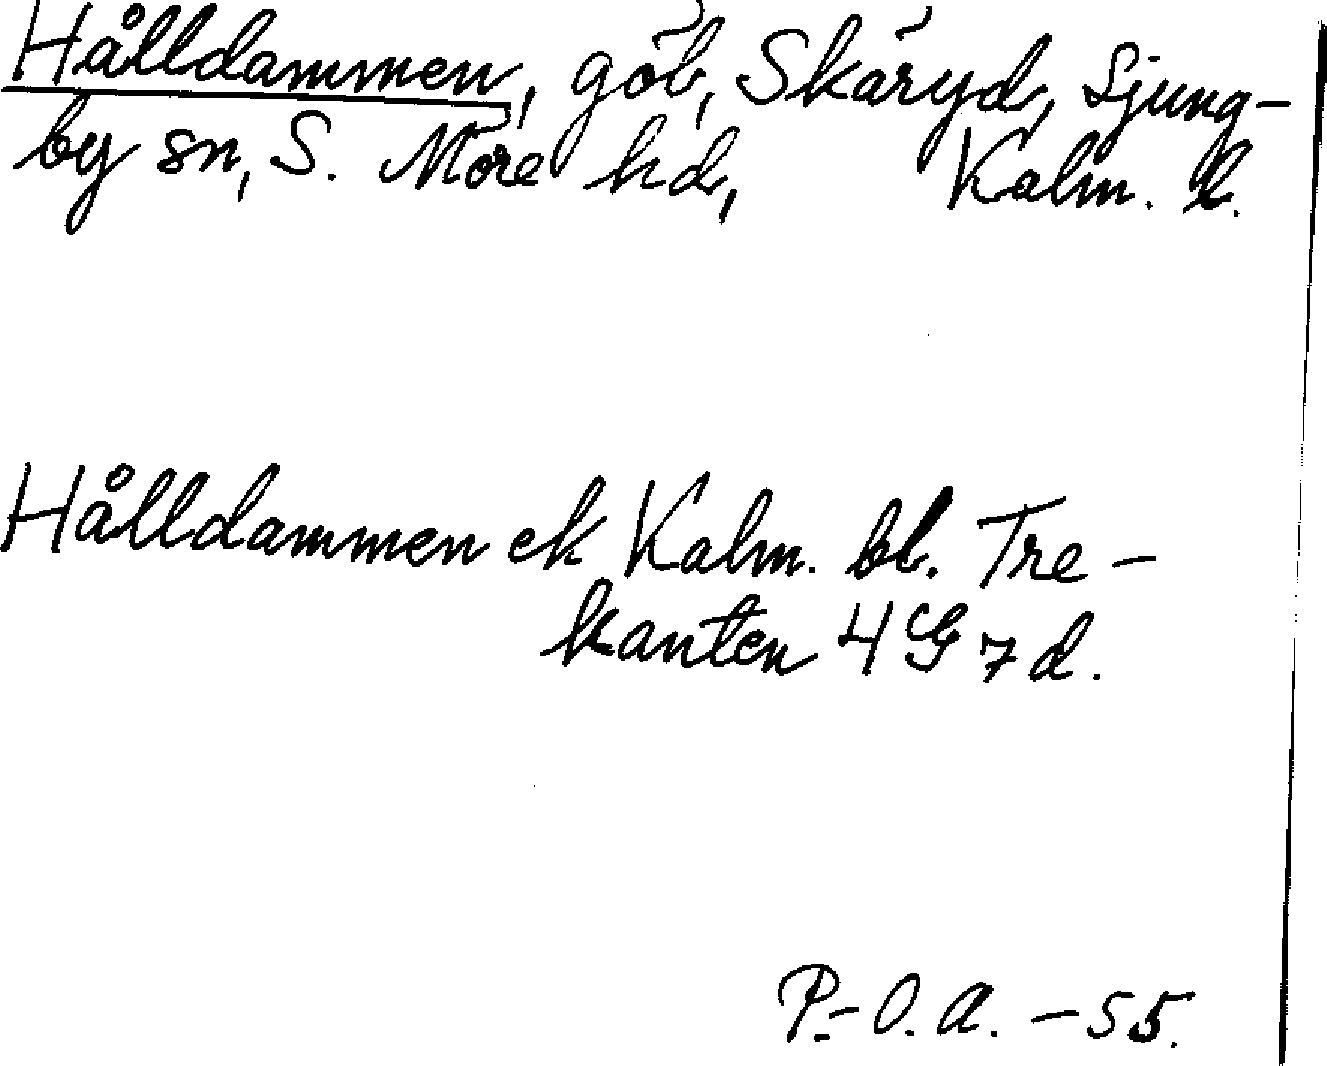 Hålldammen, göl, Skäryd, Ljung-
by sn, S. Möre hd, Kalm. l.
Hålldammen ek Kalm. bl. Tre-
kanten 4G 7d.
P.-O.A. - 55.